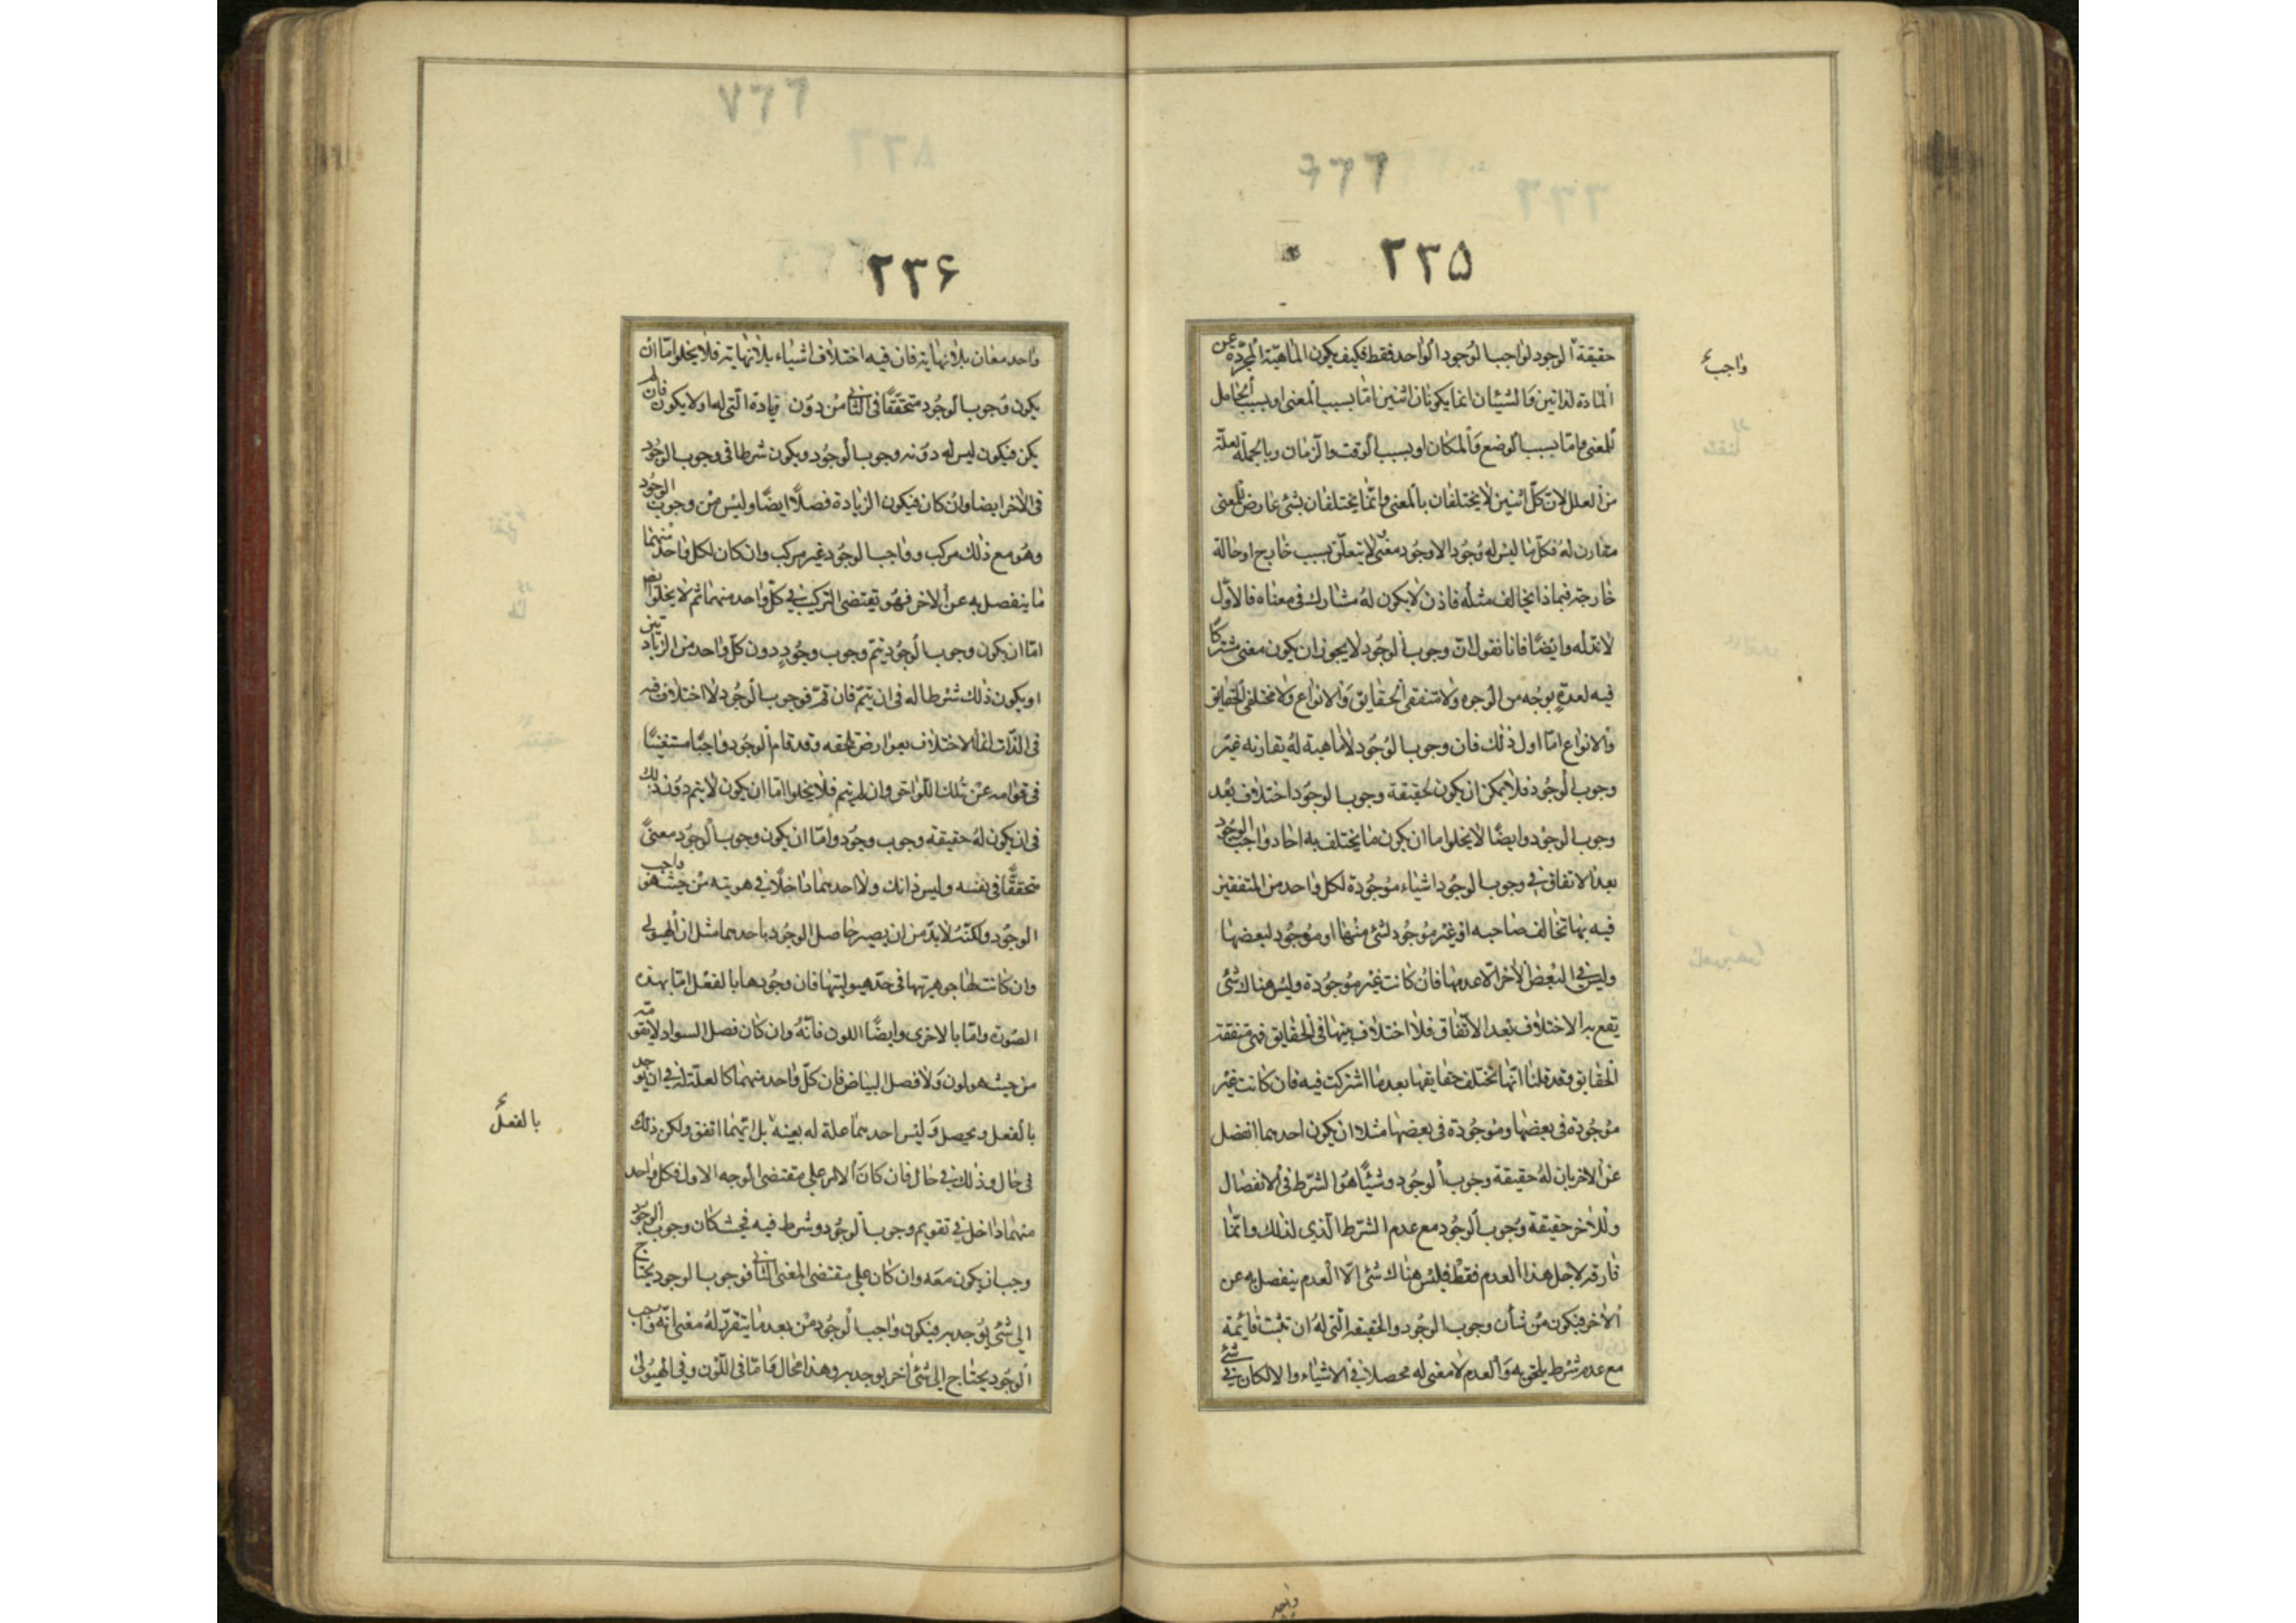 ٢٣٥
حقيقة الوجود لواجب الوجود الواحد فقط فكيف يكون الماهيّة المجرّدة عن
المادة لذاتين والشيئان انما يكونان اثنين امّا بسبب المعنى او بسبب الحامل
للمعنى وامّا بسبب الوضع والمكان او بسبب الوقت والزمان وبالجملة لعلّة
من العلل لانّ كلّ اثنين لا يختلفان بالمعنى وانّما يختلفان بشئ عارض للمعنى
مقارن له فكلّ ما ليس له وجود الا وجود معنى لا يتعلّق بسبب خارج او حالة
خارجة فبماذا يخالف مثله فاذن لا يكون له مشارك فى معناه فالاوّل
لا ندّ له وايضًا فانا نقول انّ وجوب الوجود لا يجوز ان يكون معنى مشتركًا
فيه لعدّةٍ بوجه من الوجوه ولا متفقى الحقايق والانواع ولا مختلفى الحقايق
والانواع امّا اول ذلك فان وجوب الوجود لا ماهية له يقارنه غير
وجوب الوجود فلا يمكن ان يكون لحقيقة وجوب الوجود اختلاف بعد
وجوب الوجود وايضًا لا يخلوا اما ان يكون ما يختلف به احاد واجب الوجود
بعد الاتفاق فى وجوب الوجود اشياء موجودة لكل واحد من المتفقين
فيه بها تخالف صاحبه او غير موجود لشئ منها او موجود لبعضها
وليس فى البعض الاخر الّا عدمها فان كانت غير موجودة وليس هناك شئ
يقع به الاختلاف بعد الاتّفاق فلا اختلاف بينها فى الحقايق فهى متفقة
الحقايق وقد قلنا انّها تختلف حقايقها بعد ما اشتركت فيه فان كانت غير
موجودة فى بعضها وموجودة فى بعضها مثلا ان يكون احدهما انفصل
عن الاخر بان له حقيقة وجوب الوجود وشيئًا هو الشرط فى الانفصال
وللاخر حقيقة وجوب الوجود مع عدم الشرط الّذى لذلك وانّما
فارقه لاجل هذا العدم فقط فليس هناك شئ الّا العدم ينفصل به عن
الاخر فيكون من شان وجوب الوجود والحقيقة الّتى له ان تثبت قائمة
مع عدم شرط يلحق به والعدم لا معنى له محصلا فى الاشياء والا لكان فى شئ
واجب
٢٣٦
واحد معان بلا نهاية فان فيه اختلاف اشياء بلا نهاية فلا يخلوا امّا ان
يكون وجوب الوجود متحقّقًا فى الثانى من دون زيادة الّتى له او لا يكون فان لم
يكن فيكون ليس له دونه وجوب الوجود ويكون شرطا فى وجوب الوجود
فى الاخر ايضا وان كان فيكون الزيادة فصلًا ايضًا وليس من وجوب الوجود
وهو مع ذلك مركب وواجب الوجود غير مركب وان كان لكل واحد منهما
ما ينفصل به عن الاخر فهو يقتضى التركيب فى كلّ واحد منهما ثم لا يخلوا ايضا
امّا ان يكون وجوب الوجود يتم وجوب وجودٍ دون كلّ واحد من الزيادتين
او يكون ذلك شرطا له فى ان يتمّ فان تمّ فوجوب الوجود لا اختلاف فيه
فى الذات انما الاختلاف بعوارض تلحقه وقد قام الوجود واجبًا مستغنيًا
فى قوامه عن تلك اللّواحق وان لم يتم فلا يخلوا امّا ان يكون لا يتم دون ذلك
فى ان يكون له حقيقة وجوب وجود وامّا ان يكون وجوب الوجود معنىً
متحققًا فى نفسه وليس ذانك ولا احدهما داخلًا فى هويته من حيث هو واجب
الوجود ولكنّه لا بدّ من ان يصير حاصل الوجود باحدهما مثل ان الهيولى
وان كانت لها جوهريتها فى حدّ هيوليتها فان وجودها بالفعل امّا بهذه
الصورة وامّا بالاخرى وايضًا اللون فانّه وان كان فصل السواد لا يقومه
من حيث هو لون ولا فصل البياض فان كلّ واحد منهما كالعلّة له فى ان يوجد
بالفعل ويحصل وليس احدهما علة له بعينه بل ايّهما اتفق ولكن ذلك
فى حال وذلك فى حال فان كان الامر على مقتضى الوجه الاول فكل واحد
منهما داخل فى تقويم وجوب الوجود وشرط فيه فحيث كان وجوب الوجود
وجب ان يكون معه وان كان على مقتضى المعنى الثانى فوجوب الوجود يحتاج
الى شئ يوجد به فيكون واجب الوجود من بعد ما يتقرّر له معنى انّه واجب
الوجود يحتاج الى شئ اخر يوجد به وهذا محال وامّا فى اللّون وفى الهيولى
بالفعل